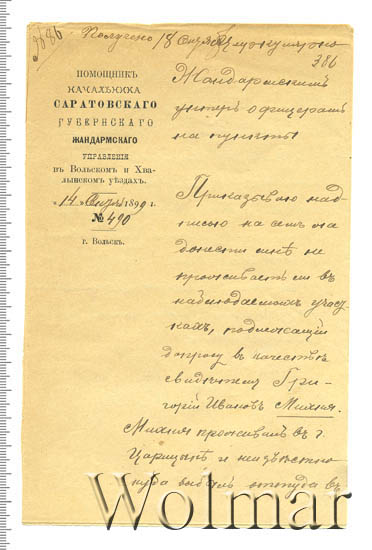 3886
Получено 18 Апреля
386
ПОМОЩНИК
НАЧАЛЬНИКА
САРАТОВСКАГО
ГУБЕРНСКАГО
ЖАНДАРМСКАГО
УПРАВЛЕНИЯ
въ Вольскомъ и Хва-
лынскомъ уѣздахъ.
14 1899 г.
№ 490
г. Вольскъ.
Жандармскимъ
унтеръ офицерамъ
на пункты
Приказываю над
писью на семъ же
донести мнѣ не
проживаетъ ли въ
наблюдаемомъ участ
кахъ, подлежащій
допросу въ качествѣ
свидѣтеля Гри-
горій Ивановъ Михня.
Михня проживалъ въ г.
Царицынѣ и неизвѣстно
куда выбылъ оттуда въ
Wolmar